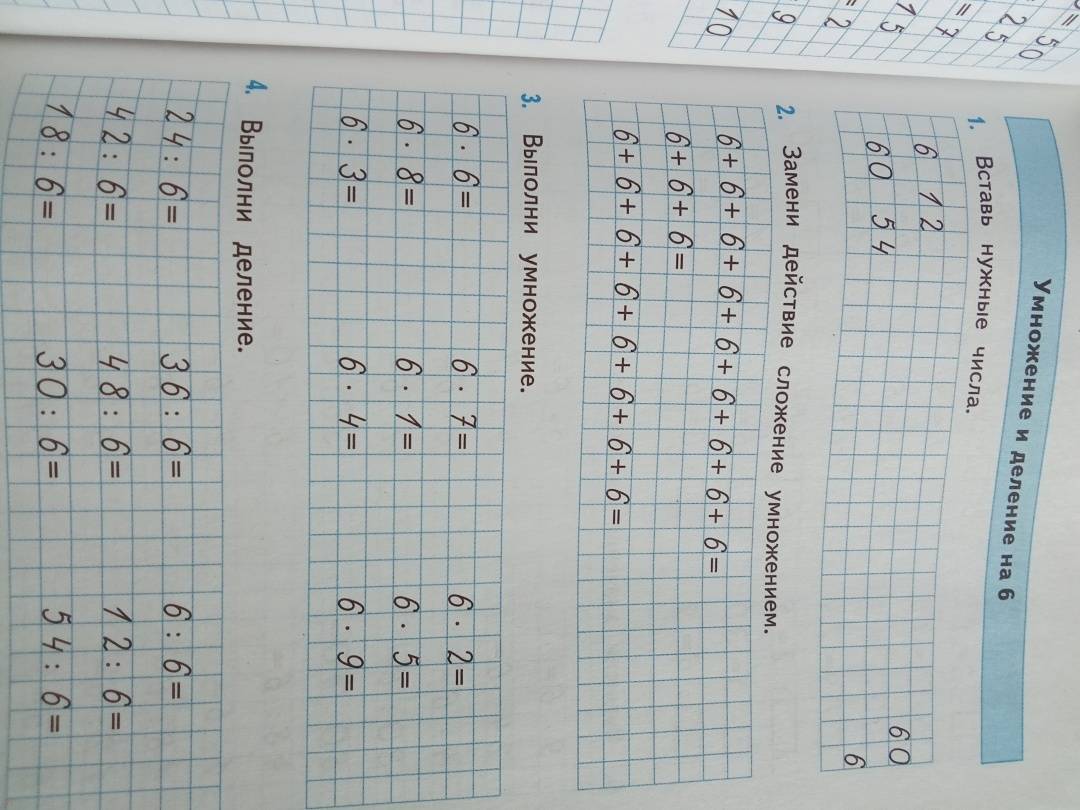 = 50
25
= 7
15
= 2
9
10
Умножение и деление на 6
1. Вставь нужные числа.
6 12 60
60 54 6
2. Замени действие сложение умножением.
6+ 6+ 6+ 6+ 6+ 6+ 6+ 6+ 6=
6+ 6+ 6=
6+ 6+ 6+ 6+ 6+ 6+ 6+ 6=
3. Выполни умножение.
6 · 6= 6 · 7= 6 · 2=
6 · 8= 6 · 1= 6 · 5=
6 · 3= 6 · 4= 6 · 9=
4. Выполни деление.
24 : 6= 36 : 6= 6 : 6=
42 : 6= 48 : 6= 12 : 6=
18 : 6= 30 : 6= 54 : 6=